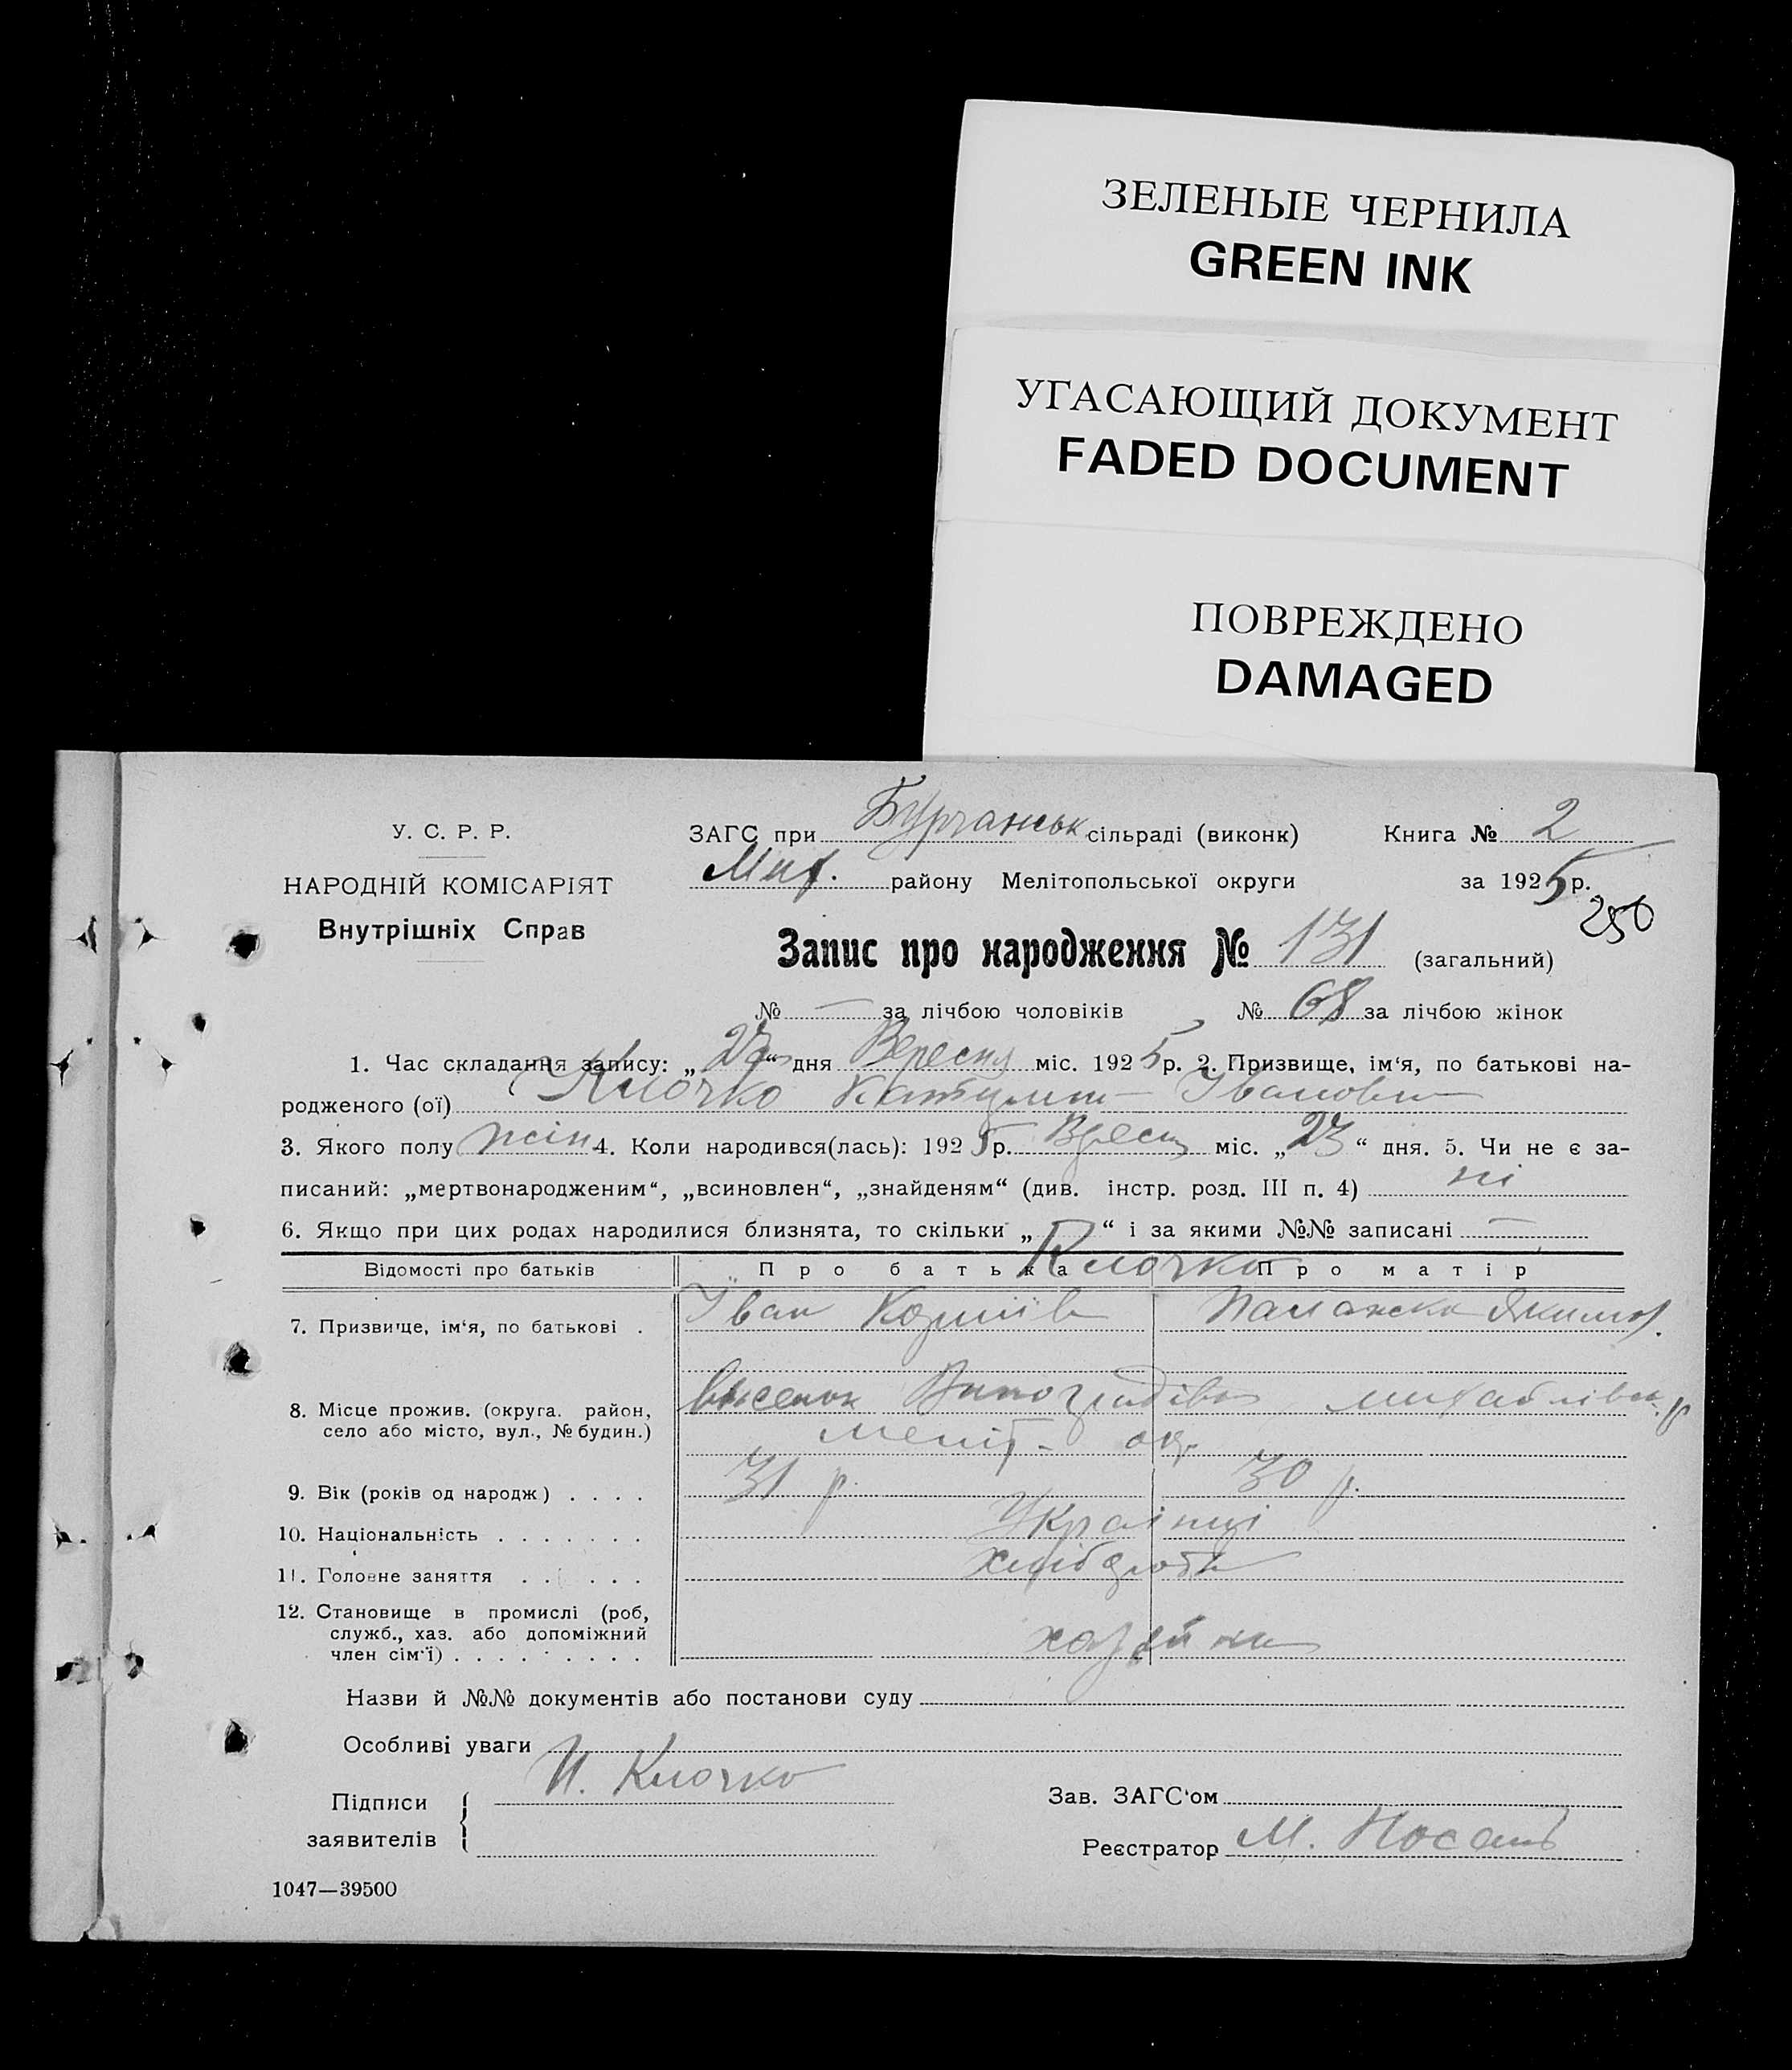 ЗЕЛЕНЫЕ ЧЕРНИЛА
GREEN INK
УГАСАЮЩИЙ ДОКУМЕНТ
FADED DOCUMENT
ПОВРЕЖДЕНО
DAMAGED
У. С. Р. Р.
НАРОДНІЙ КОМІСАРІЯТ
Внутрішніх Справ
ЗАГС при Бурчанськ сільраді (виконк) Книга № 2
Мих. району Мелітопольської округи за 1925 р.
250
Запис про народження № 131 (загальний)
№ — за лічбою чоловіків № 68 за лічбою жінок
1. Час складання запису: „27“ дня Вересня міс. 1925 р. 2. Призвище, ім‘я, по батькові на-
родженого (ої) Клочко Іванови
3. Якого полу жін 4. Коли народився(лась): 1925 р. Вересн міс. „23“ дня. 5. Чи не є за-
писаний: „мертвонародженим“, „всиновлен“, „знайденям“ (див. інстр. розд. III п. 4) ні
6. Якщо при цих родах народилися близнята, то скільки „ “ і за якими №№ записані —
Відомості про батьків Про батька Про матір
Клочко
7. Призвище, ім‘я, по батькові . Іван Корніїв Параска Якимов.
8. Місце прожив. (округа. район, село або місто, вул., № будин.) висенок Виноградівка михайлівск. р
меліт. ок.
9. Вік (років од народж) . . . . 31 р. 30 р.
10. Національність . . . . . . . Українці
11. Головне заняття . . . . . . хлібороби
12. Становище в промислі (роб,
служб., хаз. або допоміжний
член сім‘ї) . . . . . . . . . хазяйни
Назви й №№ документів або постанови суду
Особливі уваги
Підписи И. Клочко Зав. ЗАГС‘ом
заявителів Реєстратор М. Носань
1047—39500